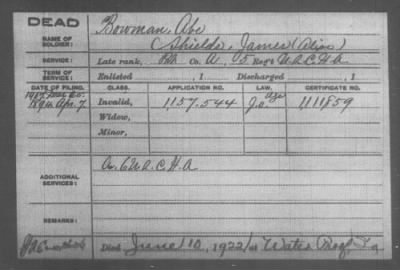 DEAD
NAME OF SOLDIER: Bowman, Abe
(Shields, James (Alias)
SERVICE: Late rank, Co. A, 5 Reg't U.S.C.H.A
TERM OF SERVICE: Enlisted , 1 Discharged , 1
DATE OF FILING. CLASS. APPLICATION NO. LAW. CERTIFICATE NO.
1894 Apr. 7 Invalid, 1157.544 1111859
Widow,
Minor,
ADDITIONAL SERVICES: C.H.A
REMARKS:
Died June 10, 1922, at Water